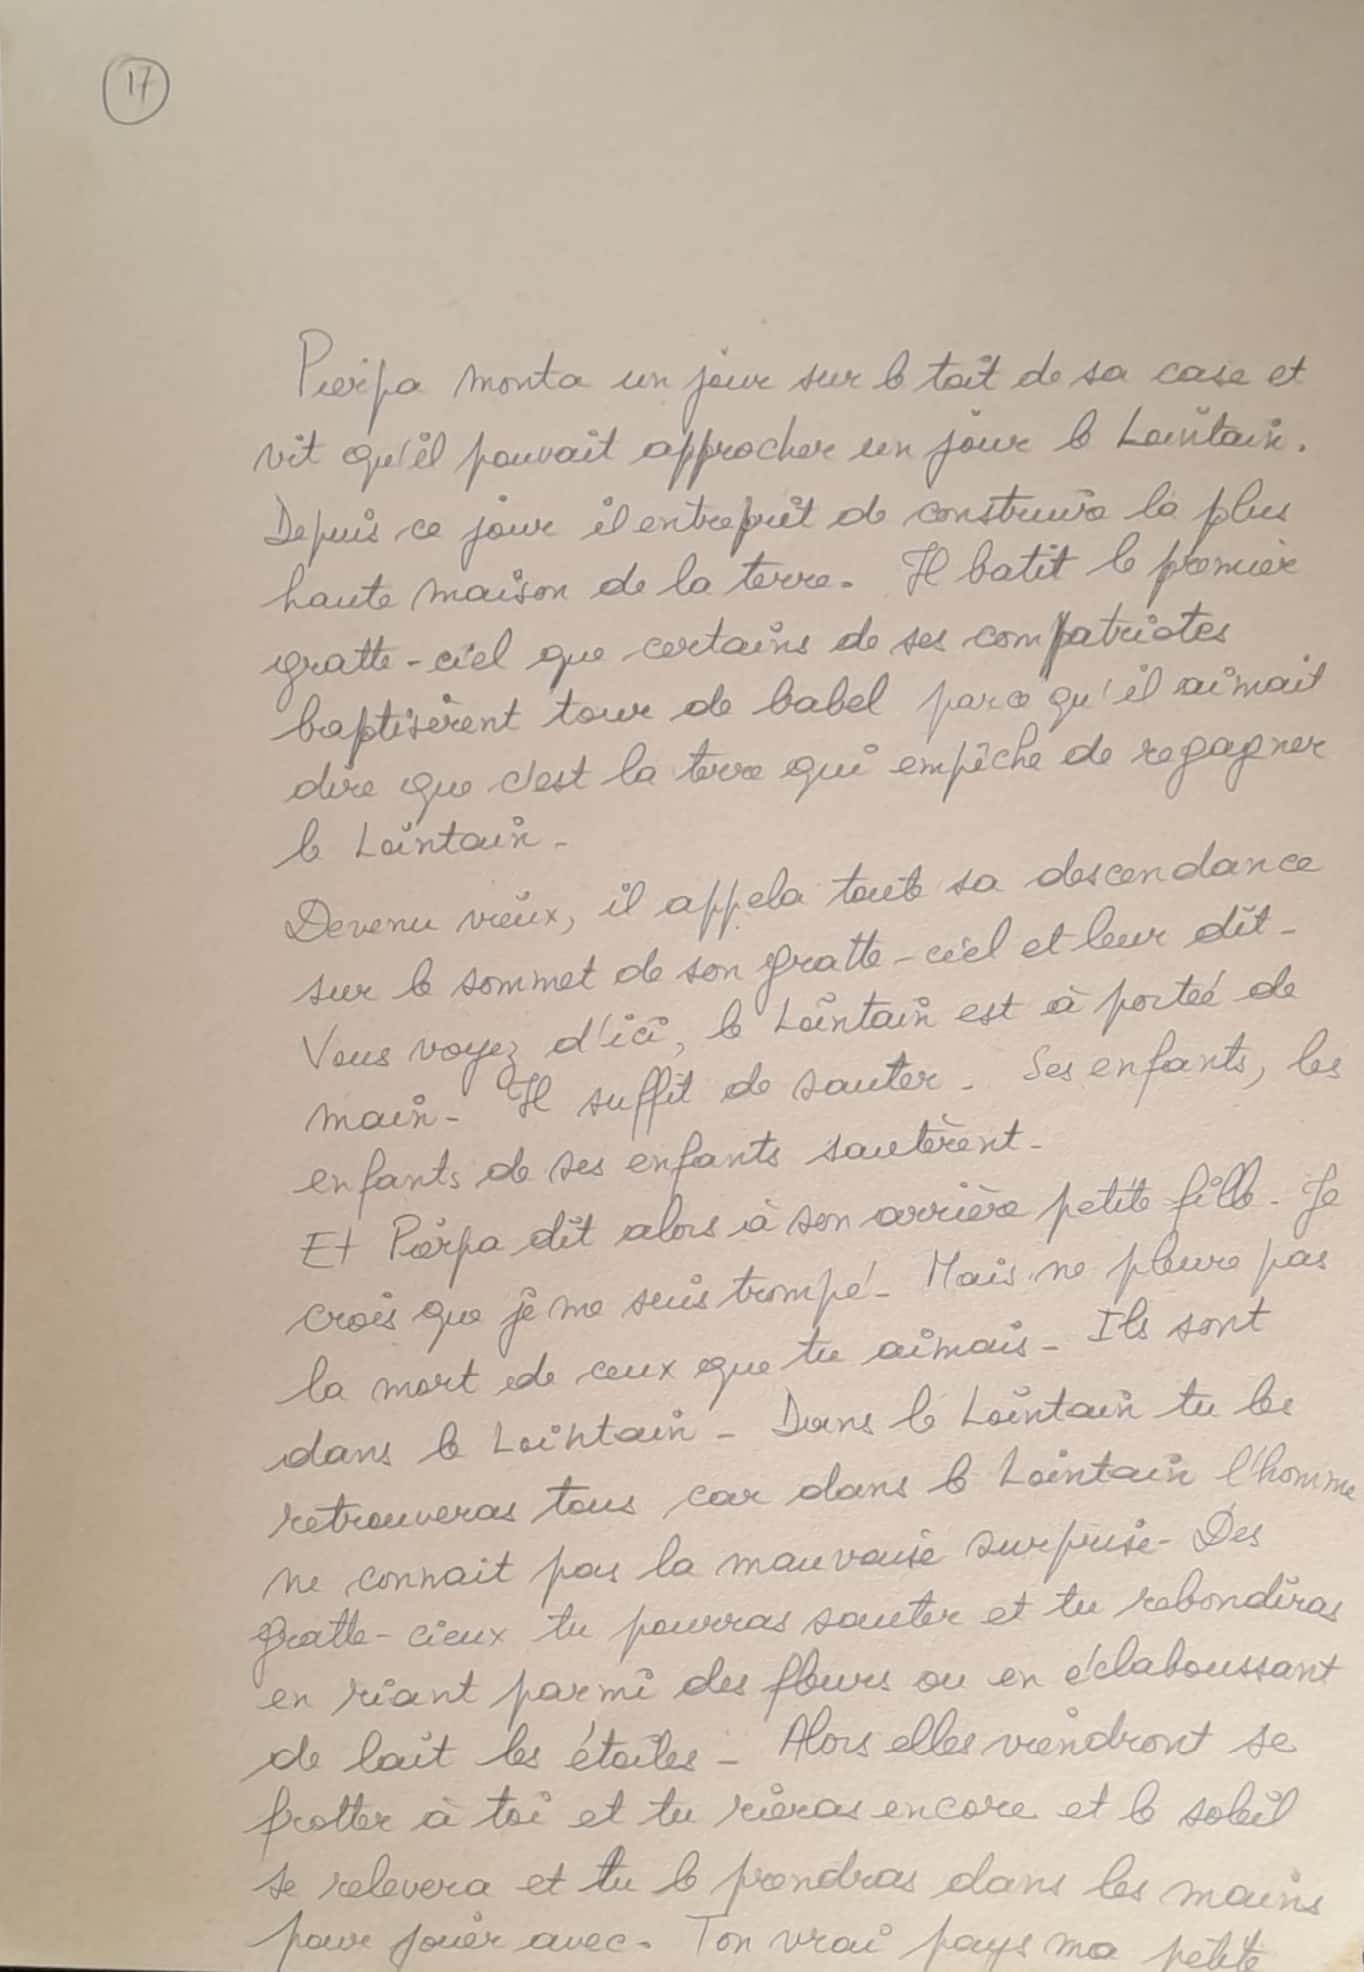 17
Pierpa monta un jour sur le toit de sa case et
vit qu'il pouvait approcher un jour le Lointain.
Depuis ce jour il entreprit de construire la plus
haute maison de la terre. Il batit le premier
gratte-ciel que certains de ses compatriotes
baptisèrent tour de babel parce qu'il aimait
dire que c'est la terre qui empêche de regagner
le Lointain -
Devenu vieux, il appela toute sa descendance
sur le sommet de son gratte-ciel et leur dit -
Vous voyez d'ici, le Lointain est à portée de
main - Il suffit de sauter - Ses enfants, les
enfants de ses enfants sautèrent -
Et Pierpa dit alors à son arrière petite fille - Je
crois que je me suis trompé - Mais ne pleure pas
la mort de ceux que tu aimais - Ils sont
dans le Lointain - Dans le Lointain tu les
retrouveras tous car dans le Lointain l'homme
ne connait pas la mauvaise surprise - Des
gratte-cieux tu pourras sauter et tu rebondiras
en riant parmi des fleurs ou en éclaboussant
de lait les étoiles - Alors elles viendront se
frotter à toi et tu rieras encore et le soleil
se relevera et tu le prendras dans les mains
pour jouer avec. Ton vrai pays ma petite